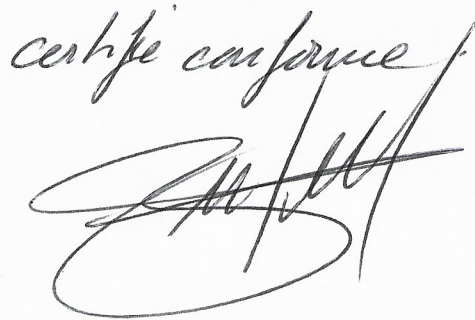 certifié conforme